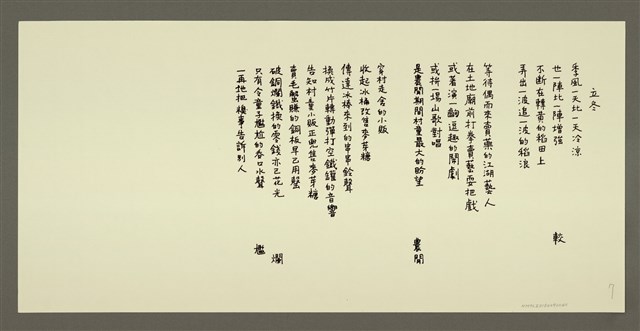 立冬
季風一天比一天冷涼
也一陣比一陣增強
不斷在轉黃的稻田上
弄出一波追一波的稻浪
等待偶而來賣藥的江湖藝人
在土地廟前打拳賣藝耍把戲
或著演一齣逗趣的鬧劇
或拚一場山歌對唱
是農閒期間村童最大的盼望
穿村走舍的小販
收起冰桶改售麥芽糖
傳達冰棒來到的串串鈴聲
換成竹片轉動彈打空鐵罐的音響
告知村童小販正兜售麥芽糖
賣毛蟹賺的銅板早已用罄
破銅爛鐵換的零錢亦已花光
只有令童子尷尬的吞口水聲
一再地把糗事告訴別人
較
農閒
爛
尷
7